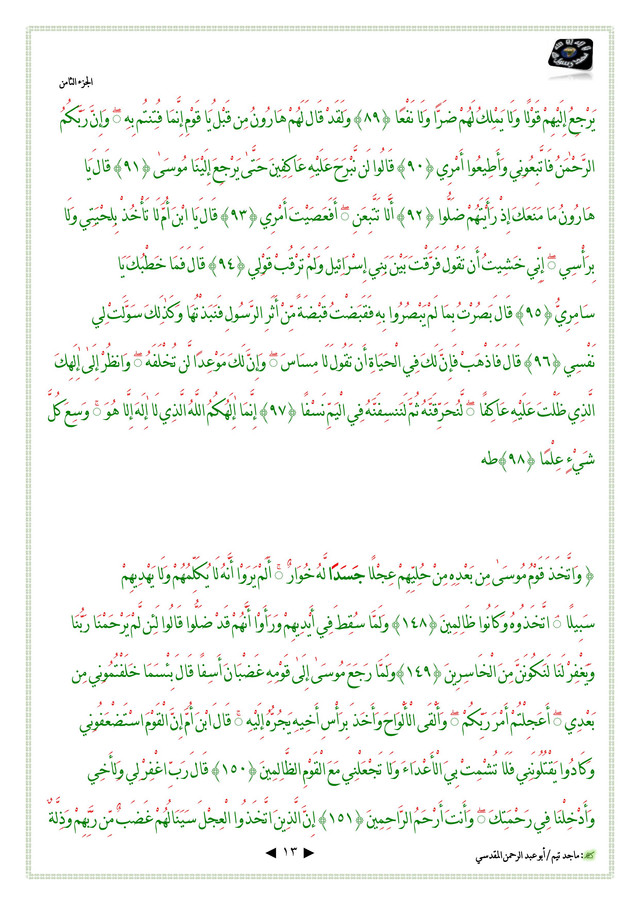 الجزء الثامن
يَرْجِعُ إِلَيْهِمْ قَوْلًا وَلَا يَمْلِكُ لَهُمْ ضَرًّا وَلَا نَفْعًا ﴿٨٩﴾ وَلَقَدْ قَالَ لَهُمْ هَارُونُ مِن قَبْلُ يَا قَوْمِ إِنَّمَا فُتِنتُم بِهِ ۖ وَإِنَّ رَبَّكُمُ
الرَّحْمَٰنُ فَاتَّبِعُونِي وَأَطِيعُوا أَمْرِي ﴿٩٠﴾ قَالُوا لَن نَّبْرَحَ عَلَيْهِ عَاكِفِينَ حَتَّىٰ يَرْجِعَ إِلَيْنَا مُوسَىٰ ﴿٩١﴾ قَالَ يَا
هَارُونُ مَا مَنَعَكَ إِذْ رَأَيْتَهُمْ ضَلُّوا ﴿٩٢﴾ أَلَّا تَتَّبِعَنِ ۖ أَفَعَصَيْتَ أَمْرِي ﴿٩٣﴾ قَالَ يَا ابْنَ أُمَّ لَا تَأْخُذْ بِلِحْيَتِي وَلَا
بِرَأْسِي ۖ إِنِّي خَشِيتُ أَن تَقُولَ فَرَّقْتَ بَيْنَ بَنِي إِسْرَائِيلَ وَلَمْ تَرْقُبْ قَوْلِي ﴿٩٤﴾ قَالَ فَمَا خَطْبُكَ يَا
سَامِرِيُّ ﴿٩٥﴾ قَالَ بَصُرْتُ بِمَا لَمْ يَبْصُرُوا بِهِ فَقَبَضْتُ قَبْضَةً مِّنْ أَثَرِ الرَّسُولِ فَنَبَذْتُهَا وَكَذَٰلِكَ سَوَّلَتْ لِي
نَفْسِي ﴿٩٦﴾ قَالَ فَاذْهَبْ فَإِنَّ لَكَ فِي الْحَيَاةِ أَن تَقُولَ لَا مِسَاسَ ۖ وَإِنَّ لَكَ مَوْعِدًا لَّن تُخْلَفَهُ ۖ وَانظُرْ إِلَىٰ إِلَٰهِكَ
الَّذِي ظَلْتَ عَلَيْهِ عَاكِفًا ۖ لَّنُحَرِّقَنَّهُ ثُمَّ لَنَنسِفَنَّهُ فِي الْيَمِّ نَسْفًا ﴿٩٧﴾ إِنَّمَا إِلَٰهُكُمُ اللَّهُ الَّذِي لَا إِلَٰهَ إِلَّا هُوَ ۚ وَسِعَ كُلَّ
شَيْءٍ عِلْمًا ﴿٩٨﴾ طه
﴿ وَاتَّخَذَ قَوْمُ مُوسَىٰ مِن بَعْدِهِ مِنْ حُلِيِّهِمْ عِجْلًا جَسَدًا لَّهُ خُوَارٌ ۚ أَلَمْ يَرَوْا أَنَّهُ لَا يُكَلِّمُهُمْ وَلَا يَهْدِيهِمْ
سَبِيلًا ۘ اتَّخَذُوهُ وَكَانُوا ظَالِمِينَ ﴿١٤٨﴾ وَلَمَّا سُقِطَ فِي أَيْدِيهِمْ وَرَأَوْا أَنَّهُمْ قَدْ ضَلُّوا قَالُوا لَئِن لَّمْ يَرْحَمْنَا رَبُّنَا
وَيَغْفِرْ لَنَا لَنَكُونَنَّ مِنَ الْخَاسِرِينَ ﴿١٤٩﴾ وَلَمَّا رَجَعَ مُوسَىٰ إِلَىٰ قَوْمِهِ غَضْبَانَ أَسِفًا قَالَ بِئْسَمَا خَلَفْتُمُونِي مِن
بَعْدِي ۖ أَعَجِلْتُمْ أَمْرَ رَبِّكُمْ ۖ وَأَلْقَى الْأَلْوَاحَ وَأَخَذَ بِرَأْسِ أَخِيهِ يَجُرُّهُ إِلَيْهِ ۚ قَالَ ابْنَ أُمَّ إِنَّ الْقَوْمَ اسْتَضْعَفُونِي
وَكَادُوا يَقْتُلُونَنِي فَلَا تُشْمِتْ بِيَ الْأَعْدَاءَ وَلَا تَجْعَلْنِي مَعَ الْقَوْمِ الظَّالِمِينَ ﴿١٥٠﴾ قَالَ رَبِّ اغْفِرْ لِي وَلِأَخِي
وَأَدْخِلْنَا فِي رَحْمَتِكَ ۖ وَأَنتَ أَرْحَمُ الرَّاحِمِينَ ﴿١٥١﴾ إِنَّ الَّذِينَ اتَّخَذُوا الْعِجْلَ سَيَنَالُهُمْ غَضَبٌ مِّن رَّبِّهِمْ وَذِلَّةٌ
كتبه : ماجد تيم / أبو عبد الرحمن المقدسي ◄ ١٣ ►